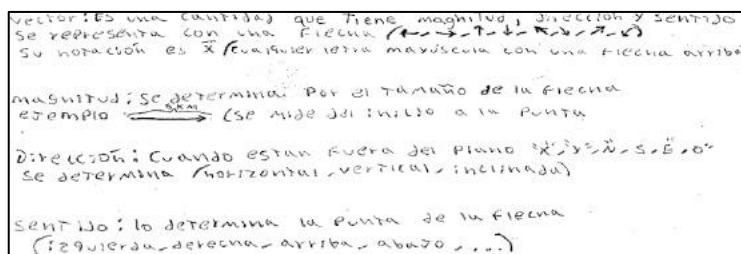 vector: Es una cantidad que tiene magnitud, dirección y sentido
se representa con una flecha (←, →, ↑, ↓, ↖, ↘, ↗, ↙)
su notación es x⃗ (cualquier letra mayúscula con una flecha arriba
magnitud: se determina por el tamaño de la flecha
ejemplo 5 KM (se mide del inicio a la punta
Dirección: Cuando estan fuera del plano "x", "y", N, S, E, O"
se determina (horizontal, vertical, inclinada)
sentido: lo determina la punta de la flecha
(izquierda, derecha, arriba, abajo, ...)